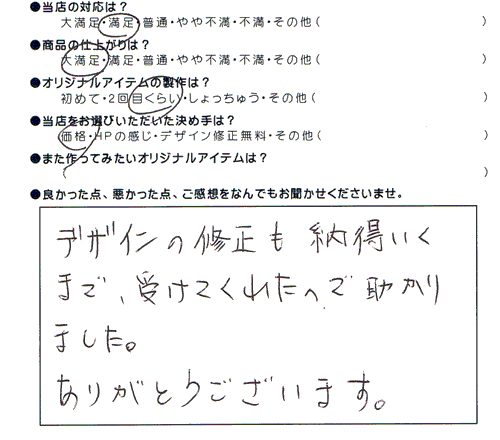 ●当店の対応は?
大満足・満足・普通・やや不満・不満・その他( )
●商品の仕上がりは?
大満足・満足・普通・やや不満・不満・その他( )
●オリジナルアイテムの製作は?
初めて・2回目くらい・しょっちゅう・その他( )
●当店をお選びいただいた決め手は?
価格・HPの感じ・デザイン修正無料・その他( )
●また作ってみたいオリジナルアイテムは?
( )
●良かった点、悪かった点、ご感想をなんでもお聞かせくださいませ。
デザインの修正も納得いく
まで、受けてくれたので助かり
ました。
ありがとうございます。